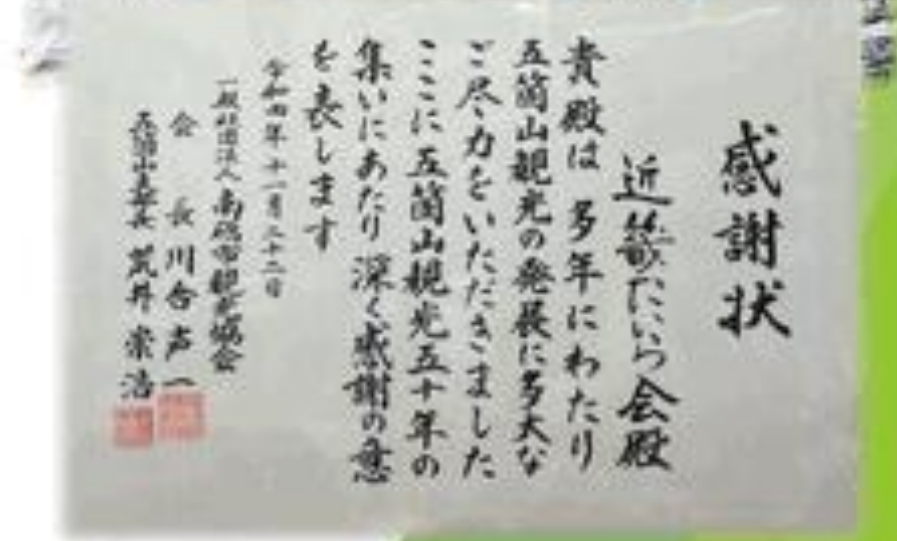 感謝状
近籔たいら会殿
貴殿は多年にわたり
五箇山観光の発展に多大な
ご尽力をいただきました
ここに五箇山観光五十年の
集いにあたり深く感謝の意
を表します
令和四年十一月二十二日
一般社団法人南砺市観光協会
会長川合声一
荒井崇浩